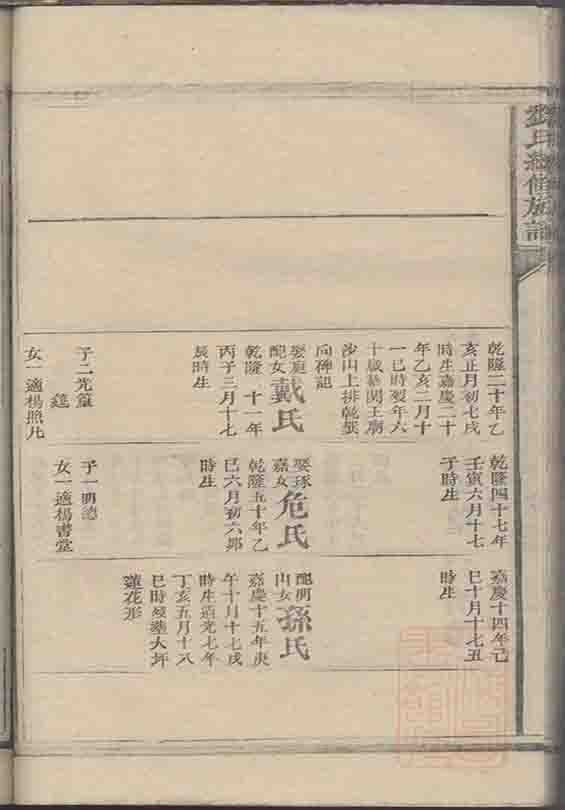 氏總修族譜
乾隆二十年乙
亥正月初七戌
時生嘉慶二十
年乙亥二月十
一巳時歿年六
十歲塟関王廟
沙山上排乾巽
向碑記
配女戴氏
乾隆 十一年
丙子三月十七
辰時生
子二光
女一適楊照
乾隆四十七年
壬寅六月十七
子時生
娶琢
嘉女危氏
乾隆五十年乙
巳六月初六卯
時生
子一明德
女一適楊書堂
嘉慶十四年己
巳十月十七丑
時生
配明
山女孫氏
嘉慶十五年庚
午十月十七戌
時生道光七年
丁亥五月十八
巳時歿塟大坪
蓮花形